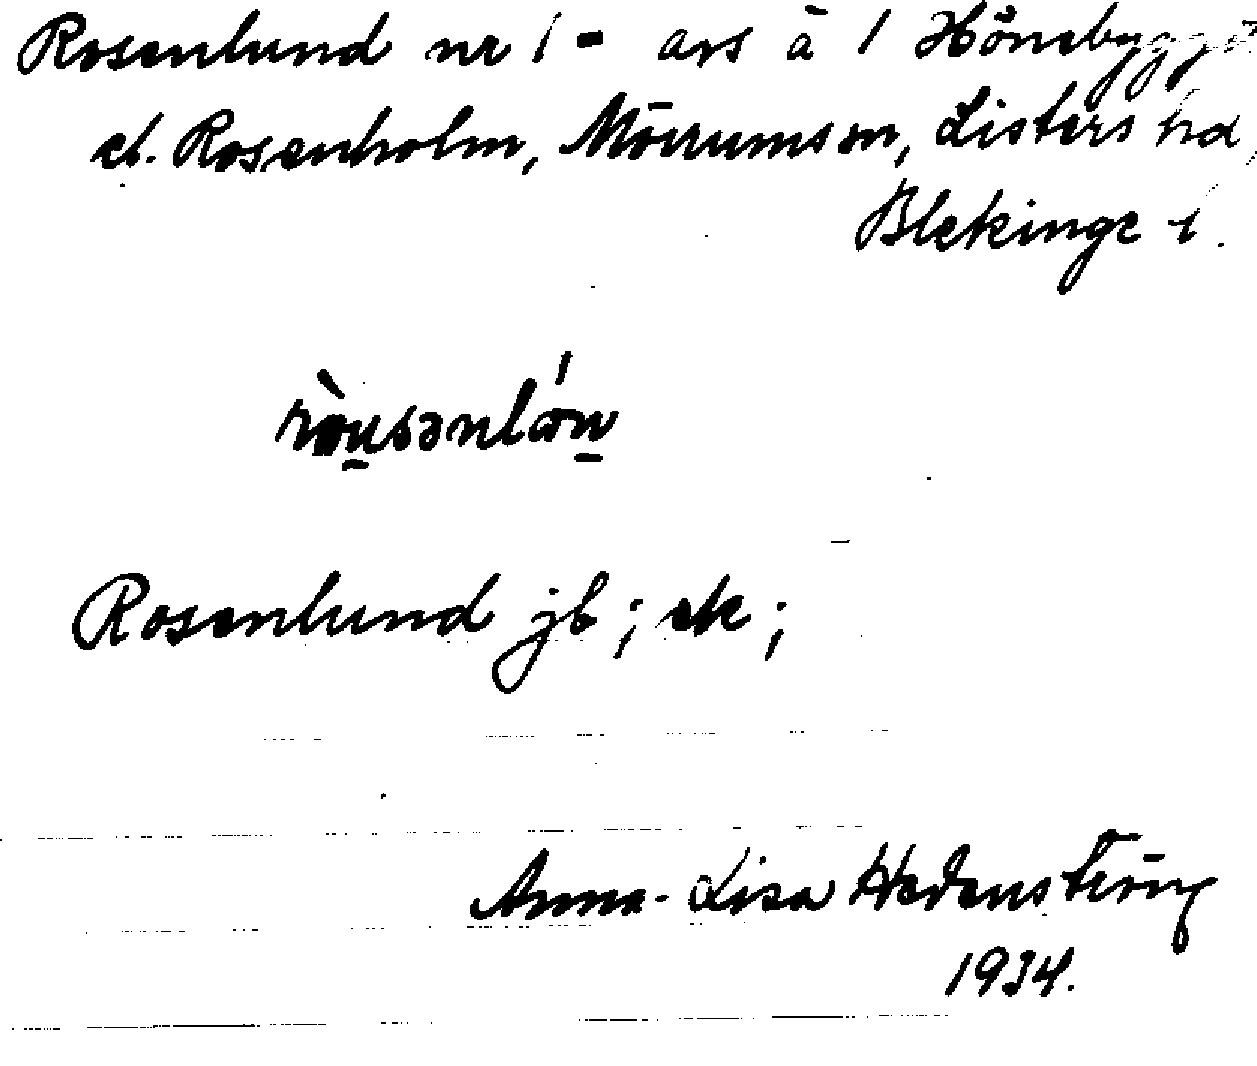 Rosenlund nr 1 - avs å 1 Hönebygget
el. Rosenholm, Mörrums sn, Listers hd,
Blekinge l.
Rosenlund jb; ek;
Anna-Lisa Hedenström
1934.